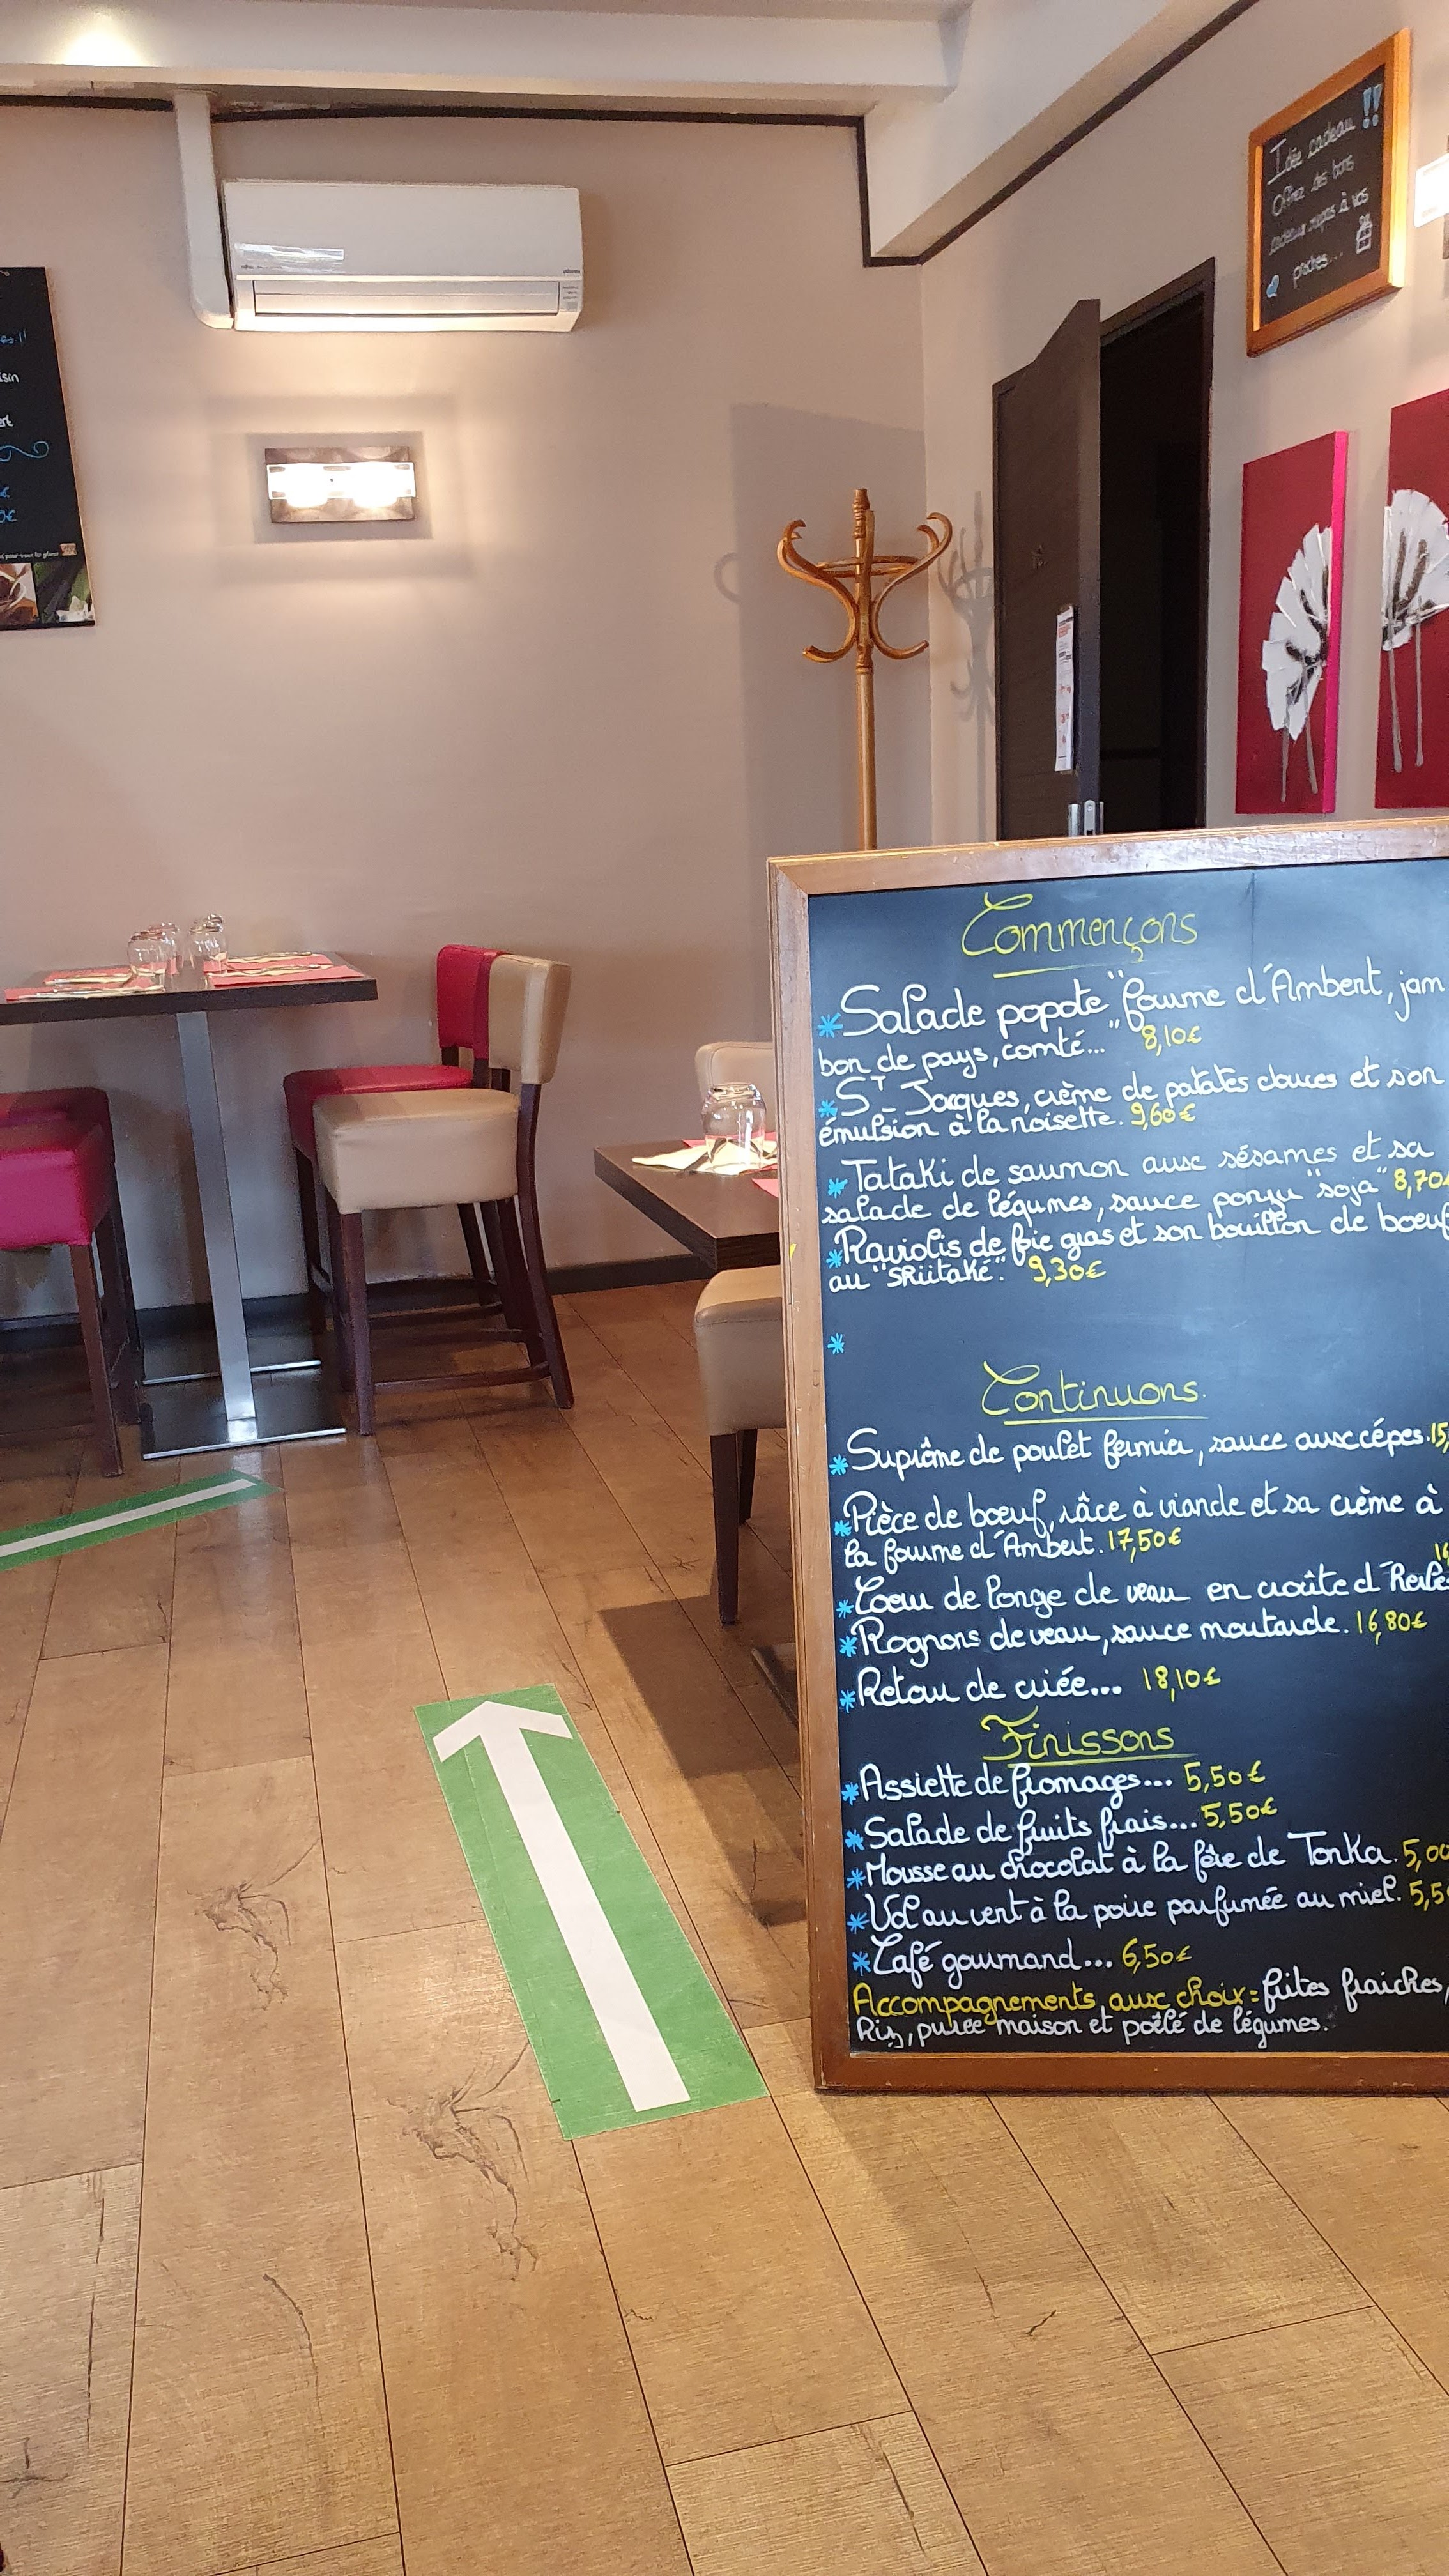 Idée cadeau !!
Offrez des bons
cadeaux repas à vos
proches...
Commençons
*Salade popote "fourme d'Ambert, jam
bon de pays, comté..." 8,10€
*St Jacques, crème de patates douces et son
émulsion à la noisette. 9,60€
*Tataki de saumon aux sésames et sa
salade de légumes, sauce ponzu "soja" 8,70€
*Raviolis de foie gras et son bouillon de boeuf
au "shiitaké". 9,30€
*
Continuons.
*Suprême de poulet fermier, sauce aux cépes. 15,
*Pièce de boeuf, râce à viande et sa crème à
la fourme d'Ambert. 17,50€
16
*Coeur de longe de veau en croûte d'
*Rognons de veau, sauce moutarde. 16,80€
*Retour de criée... 18,10€
Finissons
*Assiette de fromages... 5,50€
*Salade de fruits frais... 5,50€
*Mousse au chocolat à la fève de Tonka. 5,00
*Vol au vent à la poire parfumée au miel. 5,50
*Café gourmand... 6,50€
Accompagnements aux choix = frites fraiches,
Riz, purée maison et poêlé de légumes.